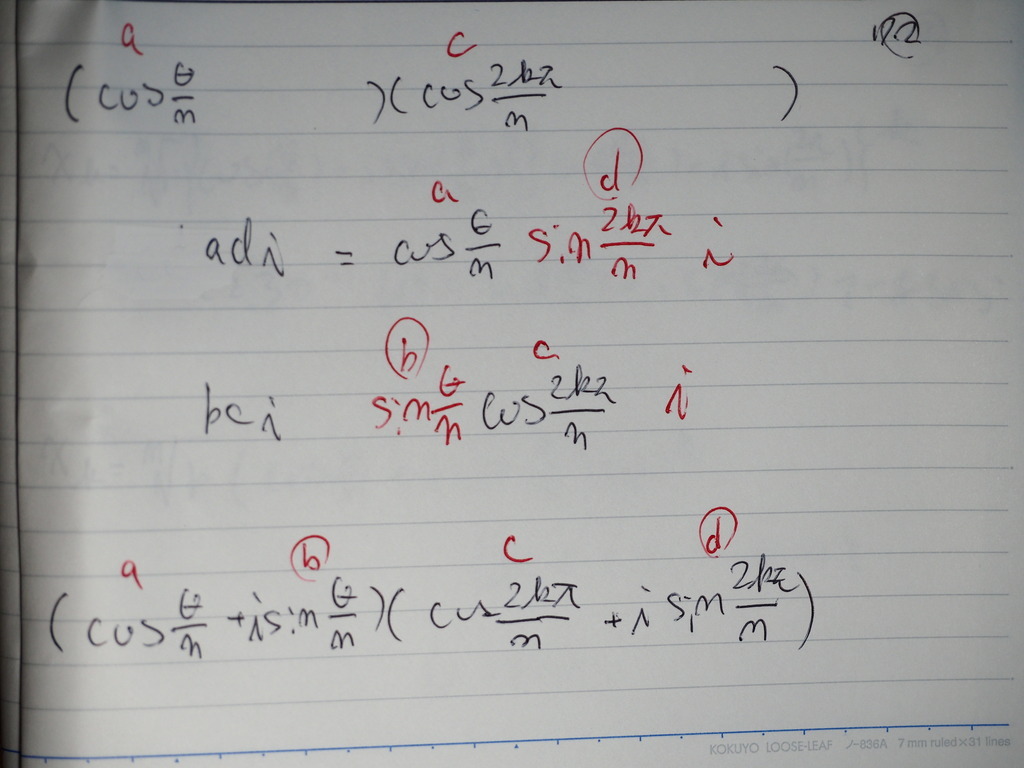 a c
(cos θ/n )(cos 2kπ/n )
a d
adi = cos θ/n sin 2kπ/n i
b c
bci sin θ/n cos 2kπ/n i
a b c d
(cos θ/n +i sin θ/n)(cos 2kπ/n +i sin 2kπ/n)
KOKUYO LOOSE-LEAF ノ-836A 7 mm ruled×31 lines